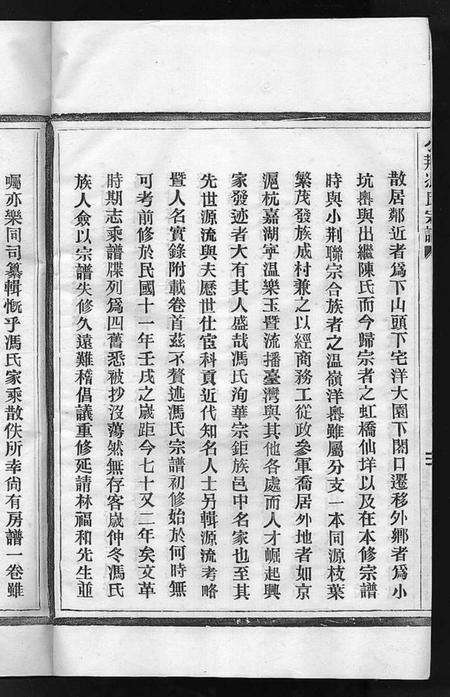 小荆馮氏宗譜
散居鄰近者爲下山頭下宅洋大園下閣口遷移外鄕者爲小
坑嶴與出繼陳氏而今歸宗者之虹橋仙垟以及在本修宗譜
時與小荆聯宗合族者之温嶺洋嶴雖屬分支一本同源枝葉
繁茂發族成村兼之以經商務工從政參軍喬居外地者如京
滬杭嘉湖寧温樂玉暨流播臺灣與其他各處而人才崛起興
家發迹者大有其人盛哉馮氏洵華宗鉅族邑中名家也至其
先世源流與夫歷世仕宦科貢近代知名人士另輯源流考略
暨人名實錄附載卷首兹不贅述馮氏宗譜初修始於何時無
可考前修於民國十一年壬戌之歲距今七十又二年矣文革
時期志乘譜牒列爲四舊悉被抄没蕩然無存客歲仲冬馮氏
族人僉以宗譜失修久遠難稽倡議重修延請林福和先生並
囑亦樂同司纂輯慨乎馮氏家乘散佚所幸尙有房譜一卷雖